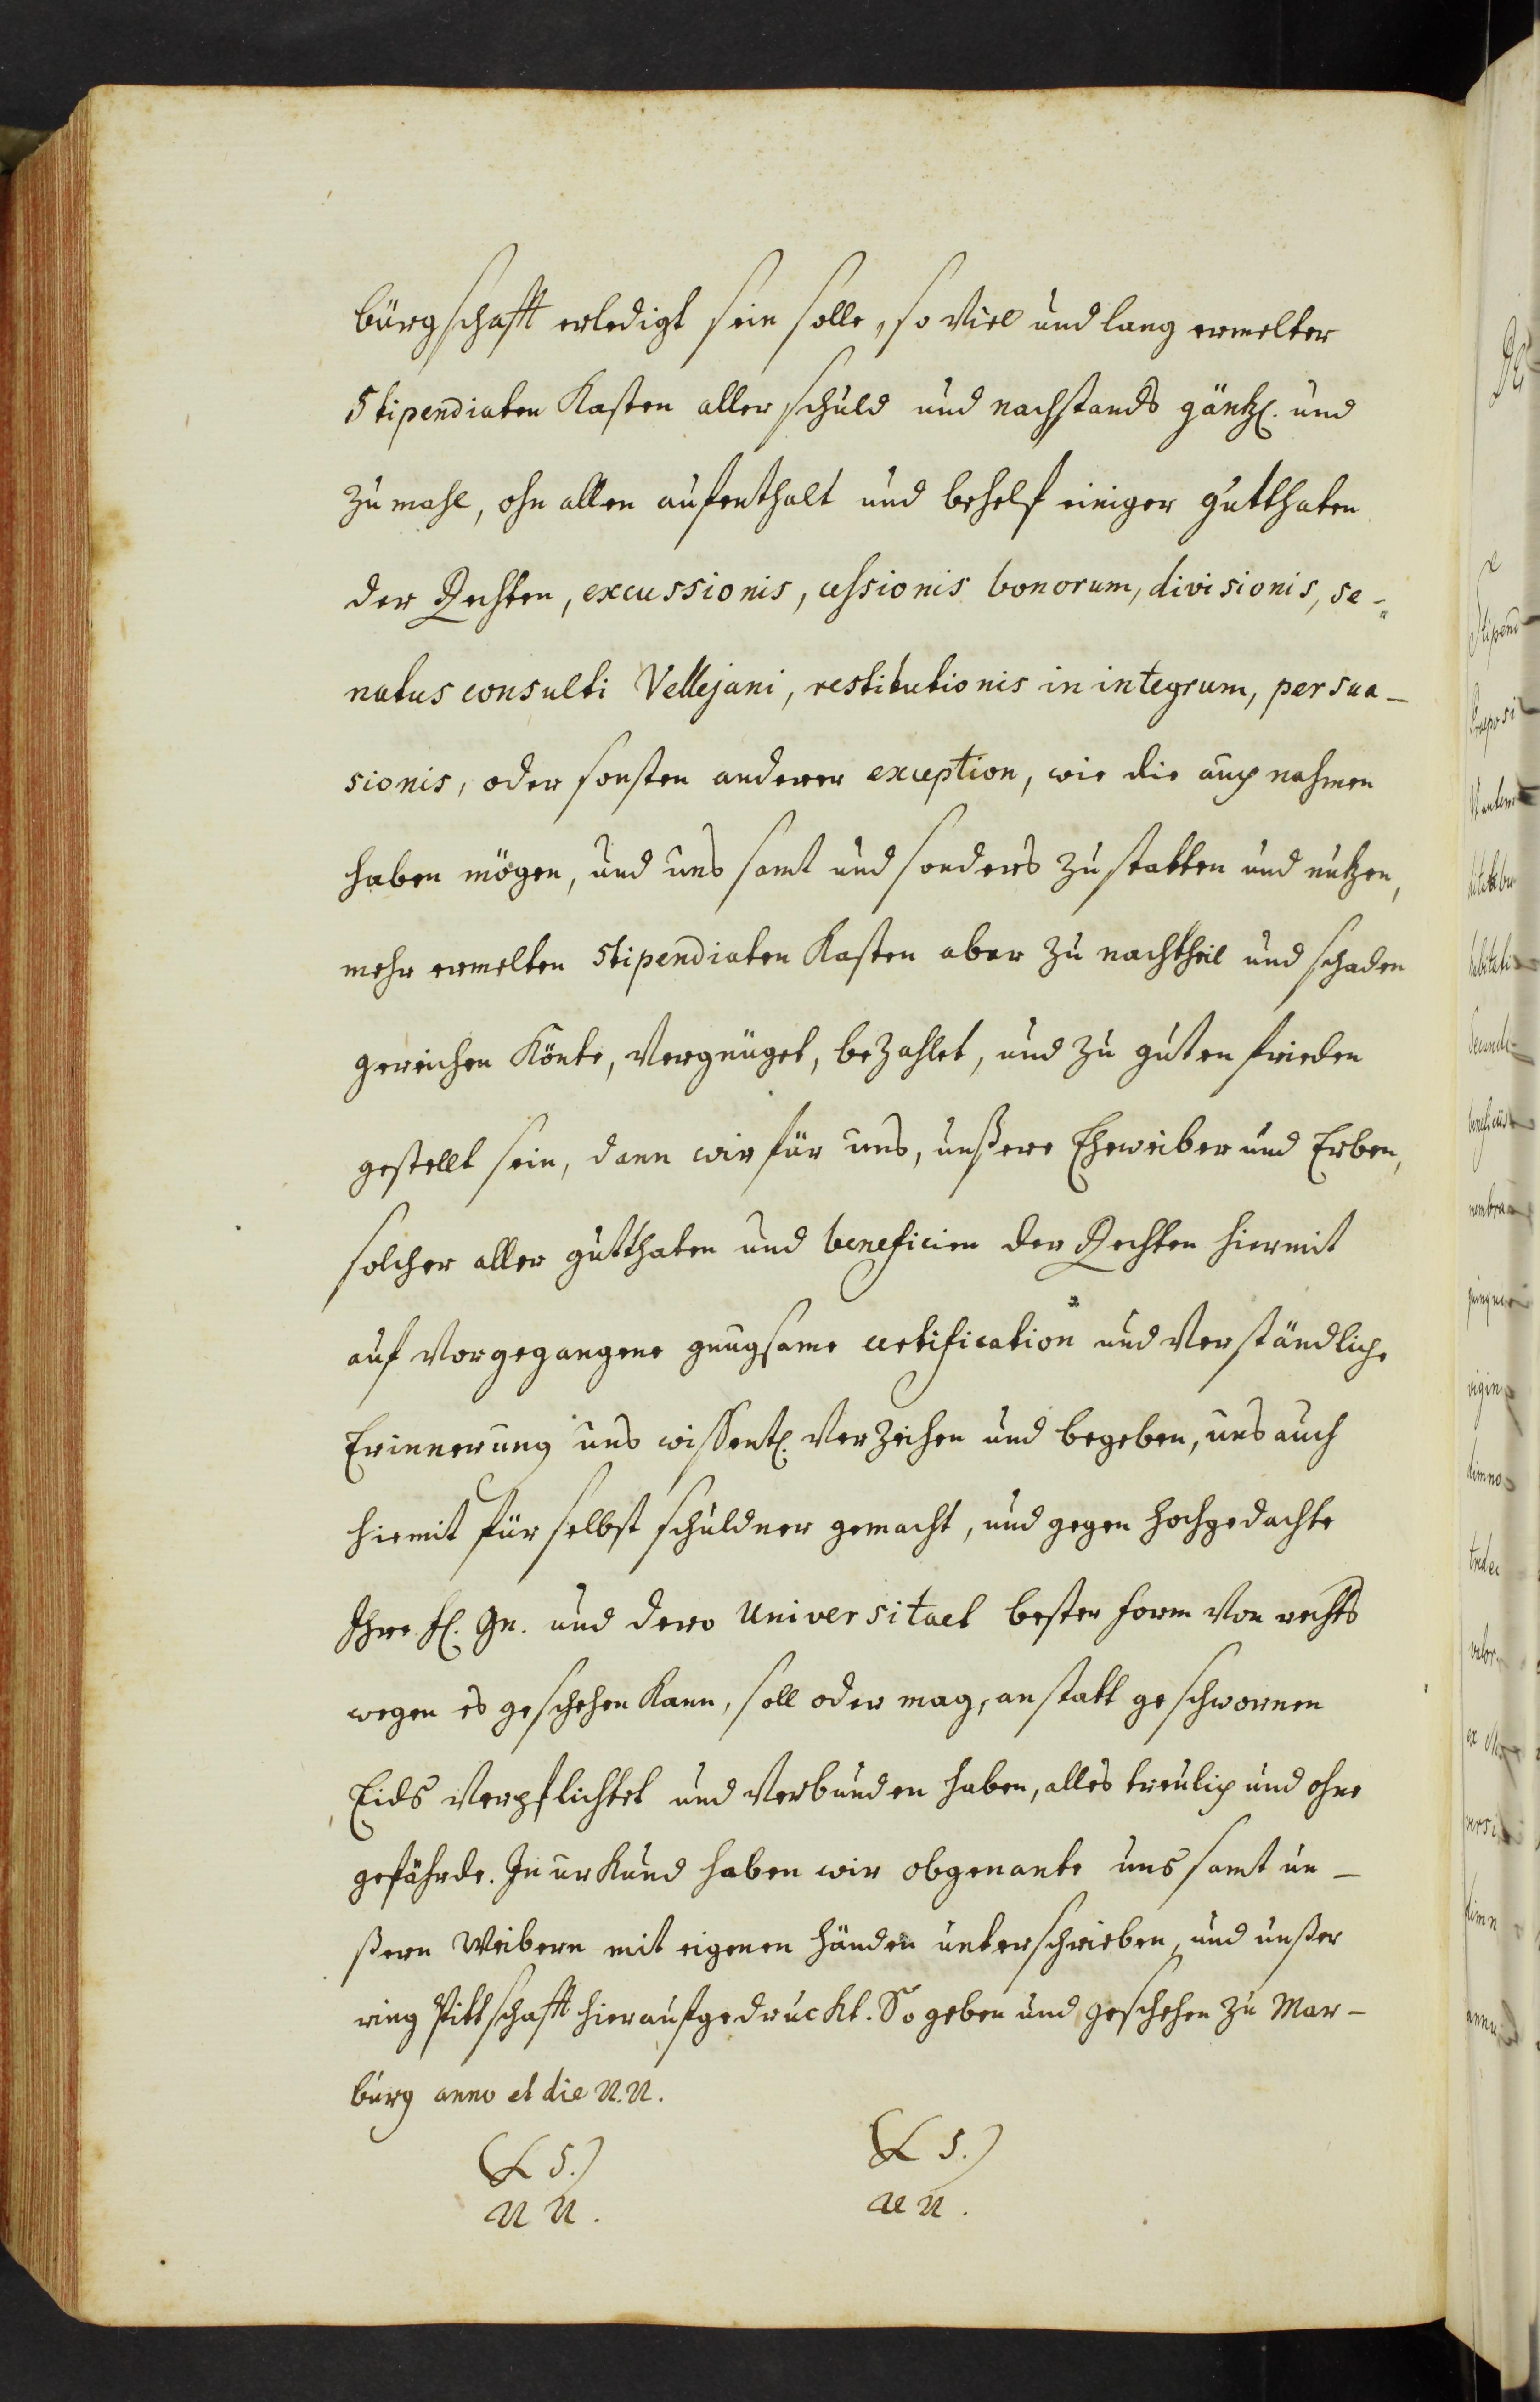 bürgschafft erledigt sein solle, so viel und lang ermelter
Stipendiaten Kasten aller schuld und nachstands gäntzl. und
zu mahl, ohn allen aufenthalt und behelf einiger gutthaten
der Rechten, excussionis, cessionis bonorum, divisionis, se-
natus consulti Vellejani, restitutionis in integrum, persua-
sionis, oder sonsten anderer exception, wie die auch nahmen
haben mögen, und uns samt und sonders zu statten und nutzen,
mehr ermelten Stipendiaten Kasten aber zu nachtheil und schaden
gereichen Könte, vergnüget, bezahlet, und zu guten frieden
gestellt sein, dann wir für uns, unßere Eheweiber und Erben,
solcher aller gutthaten und beneficien der Rechten hiermit
auf vorgegangene gnugsame certification und verständliche
Erinnerung uns wissentl. verzeihen und begeben, uns auch
hiemit für selbst schuldner gemacht, und gegen hochgedachte
Ihre fl. Gn. und dero Universitaet bester form von rechts
wegen es geschehen Kann, soll oder mag, anstatt geschwornen
Eids verpflichtet und verbunden haben, alles treulich und ohne
gefährde. In urkund haben wir obgenante uns samt un-
ßern Weibern mit eigenen händen unterschrieben, und unßer
ring Pittschafft hierauf gedruckt. So geben und geschehen zu Mar-
burg anno et die N.N.
(L S.) (L S.)
N N. N N.